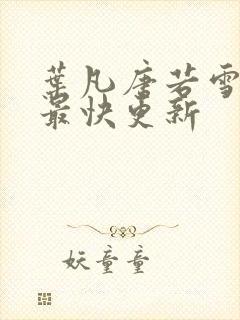 葉凡唐若雪
最快更新
妖童童